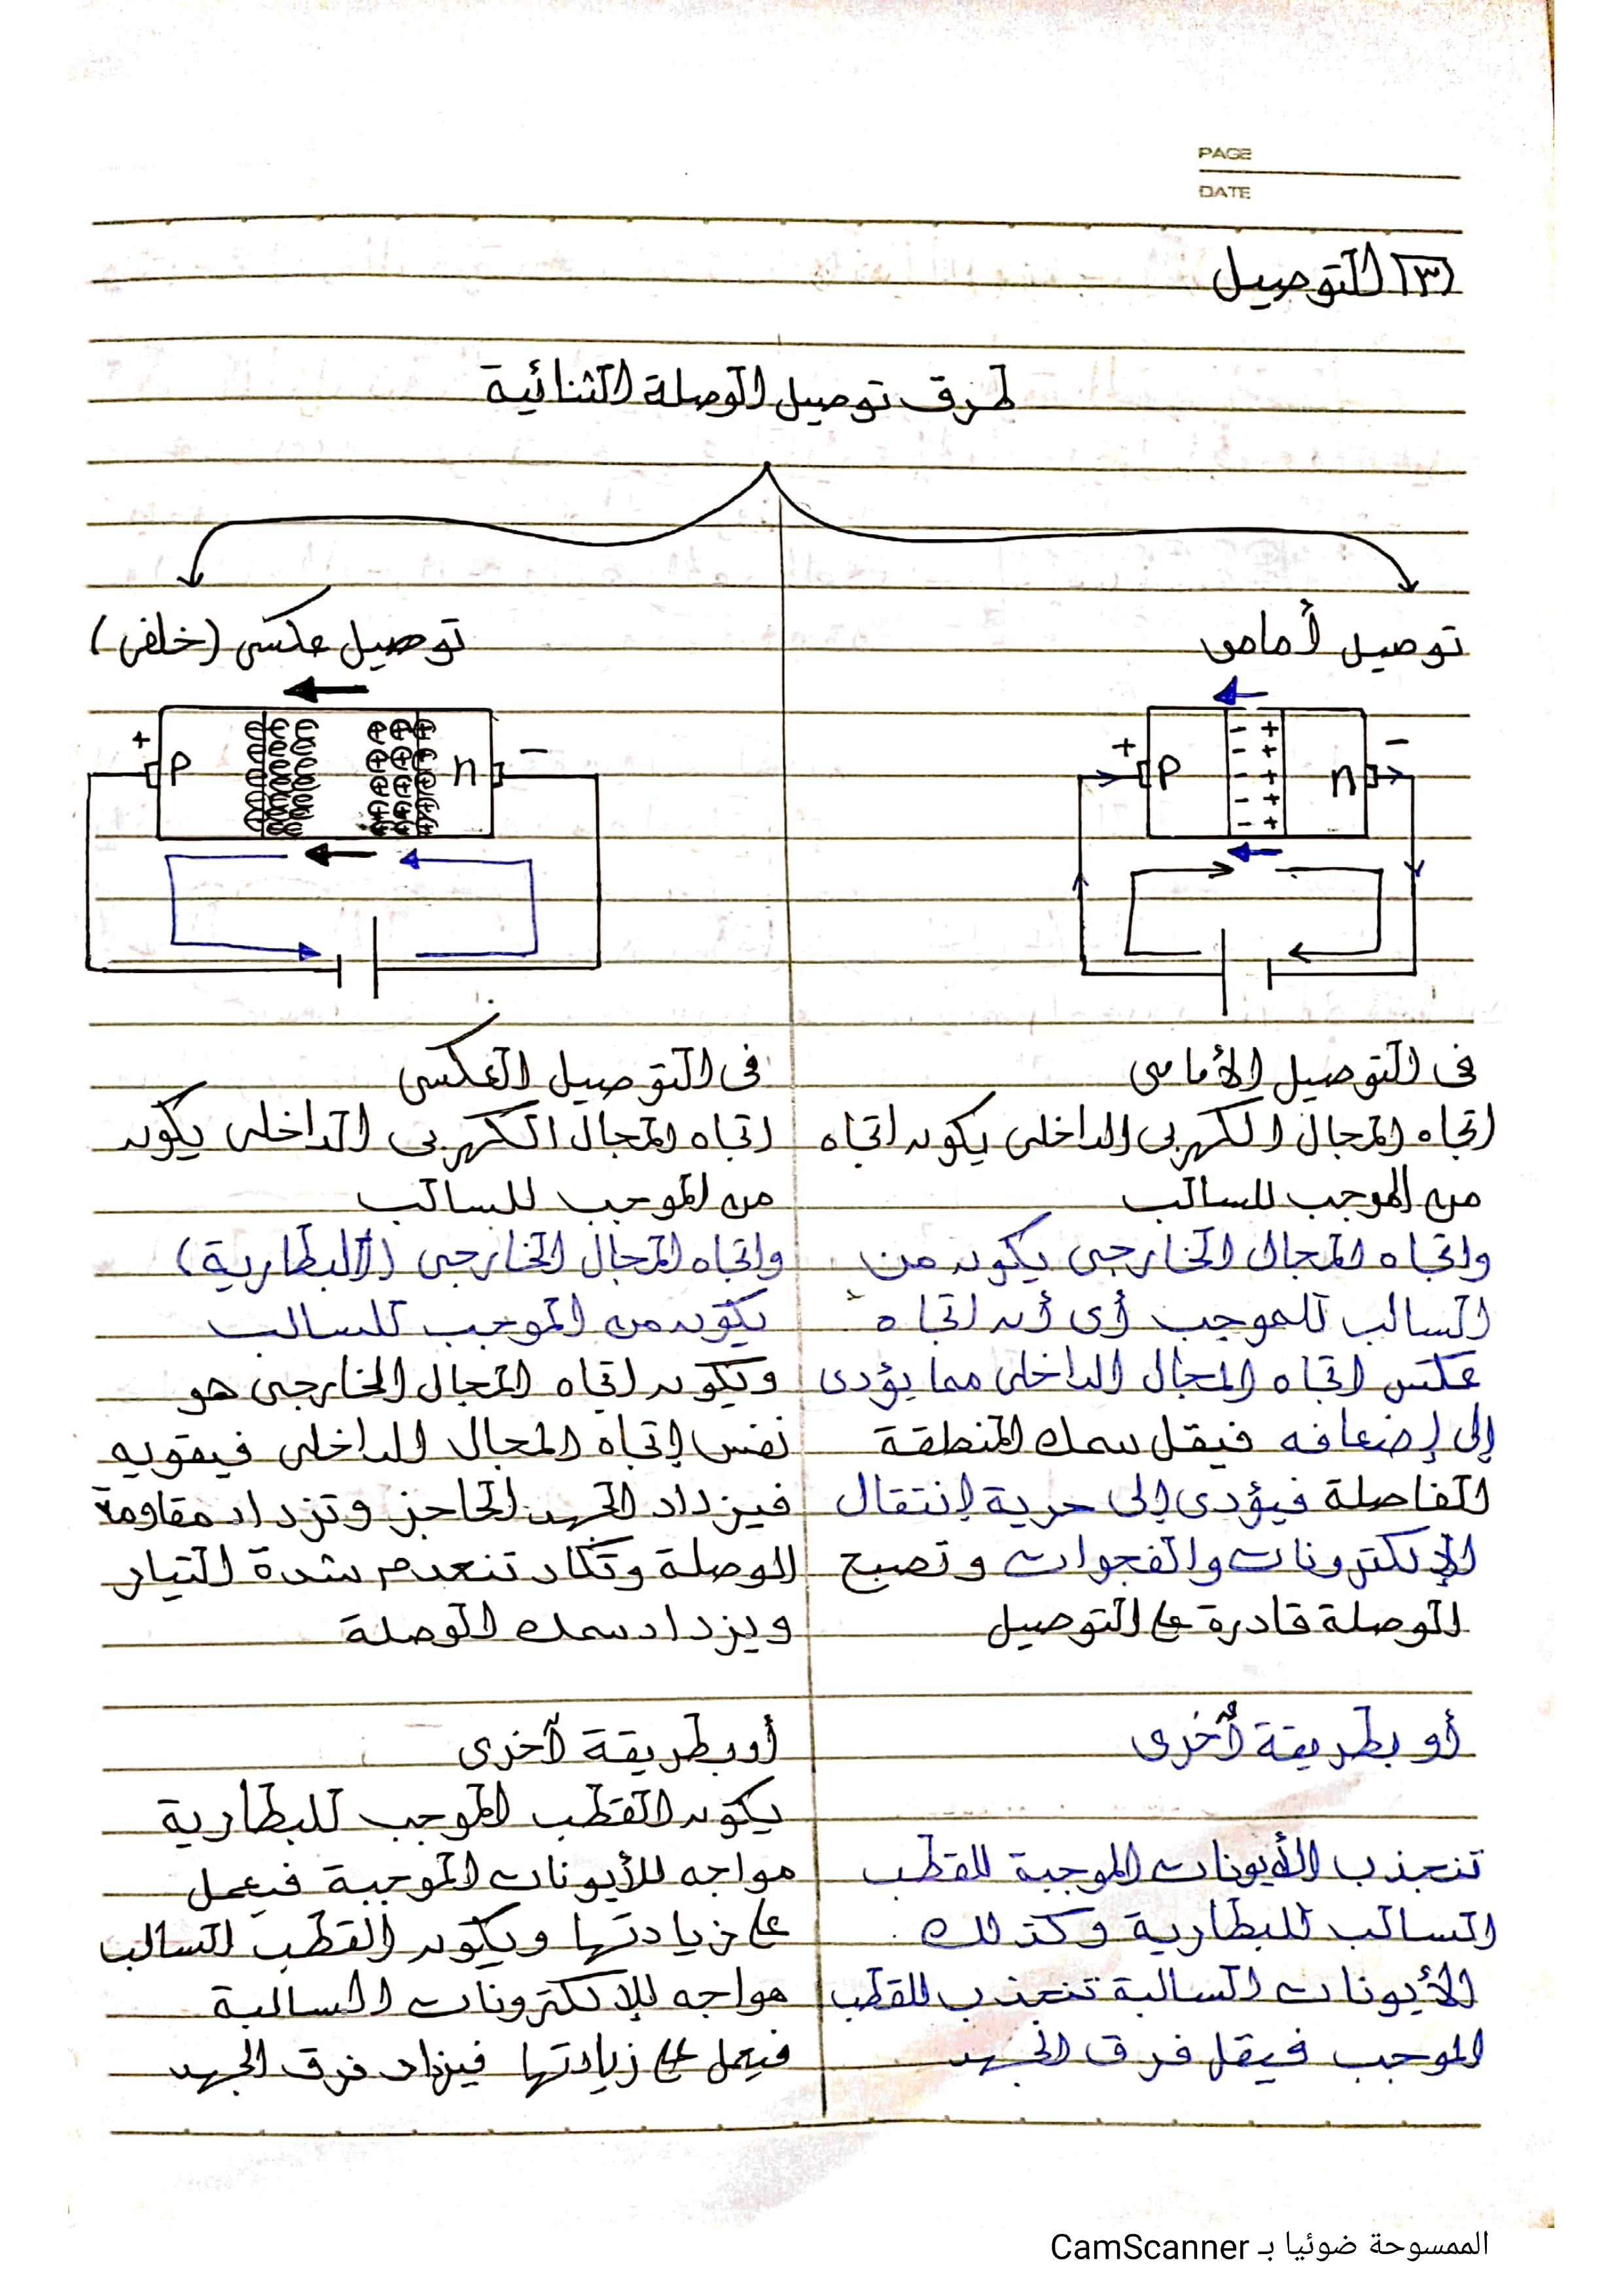 PAGE
DATE
[٣] التوصيل
طرق توصيل الوصلة الثنائية
توصيل أمامى
+ P - + n -
في التوصيل الأمامى
اتجاه المجال الكهربى الداخلى يكون اتجاه
من الموجب للسالب
واتجاه المجال الخارجى يكون من
السالب للموجب أى أن اتجاه
عكس اتجاه المجال الداخلى مما يؤدى
إلى إضعافه فيقل سمك المنطقة
الفاصلة فيؤدى إلى حرية إنتقال
الإلكترونات والفجوات وتصبح
الوصلة قادرة على التوصيل
أو بطريقة آخرى
تنجذب الأيونات الموجبة للقطب
السالب للبطارية وكذلك
الأيونات السالبة تنجذب للقطب
الموجب فيقل فرق الجهد
توصيل عكسى (خلفى)
+ P n -
فى التوصيل العكسى
اتجاه المجال الكهربى الداخلى يكون
من الموجب للسالب
واتجاه المجال الخارجى (البطارية)
يكون من الموجب للسالب
ويكون اتجاه المجال الخارجى هو
نفس إتجاه المجال الداخلى فيقويه
فيزداد الجهد الحاجز وتزداد مقاومة
الوصلة وتكاد تنعدم شدة التيار
ويزداد سمك الوصلة
أو بطريقة آخرى
يكون القطب الموجب للبطارية
مواجه للأيونات الموجبة فيعمل
على زيادتها ويكون القطب السالب
مواجه للإلكترونات السالبة
فيعمل على زيادتها فيزداد فرق الجهد
الممسوحة ضوئيا بـ CamScanner